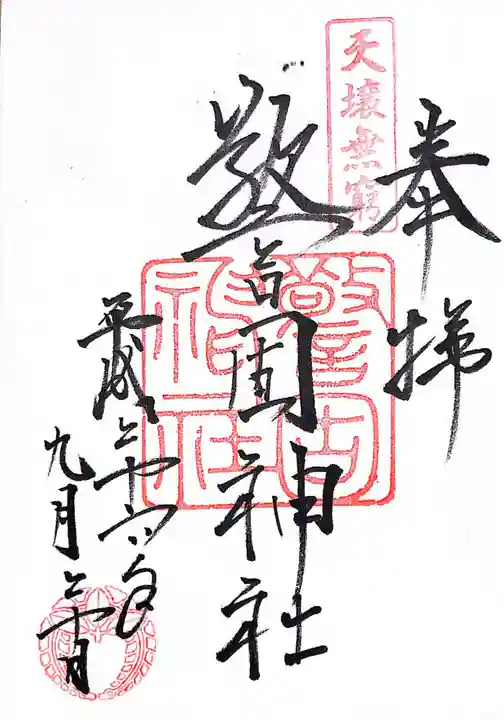 天壌無窮
奉拝
警固神社
警固
神社
平成二十六年
九月二十日